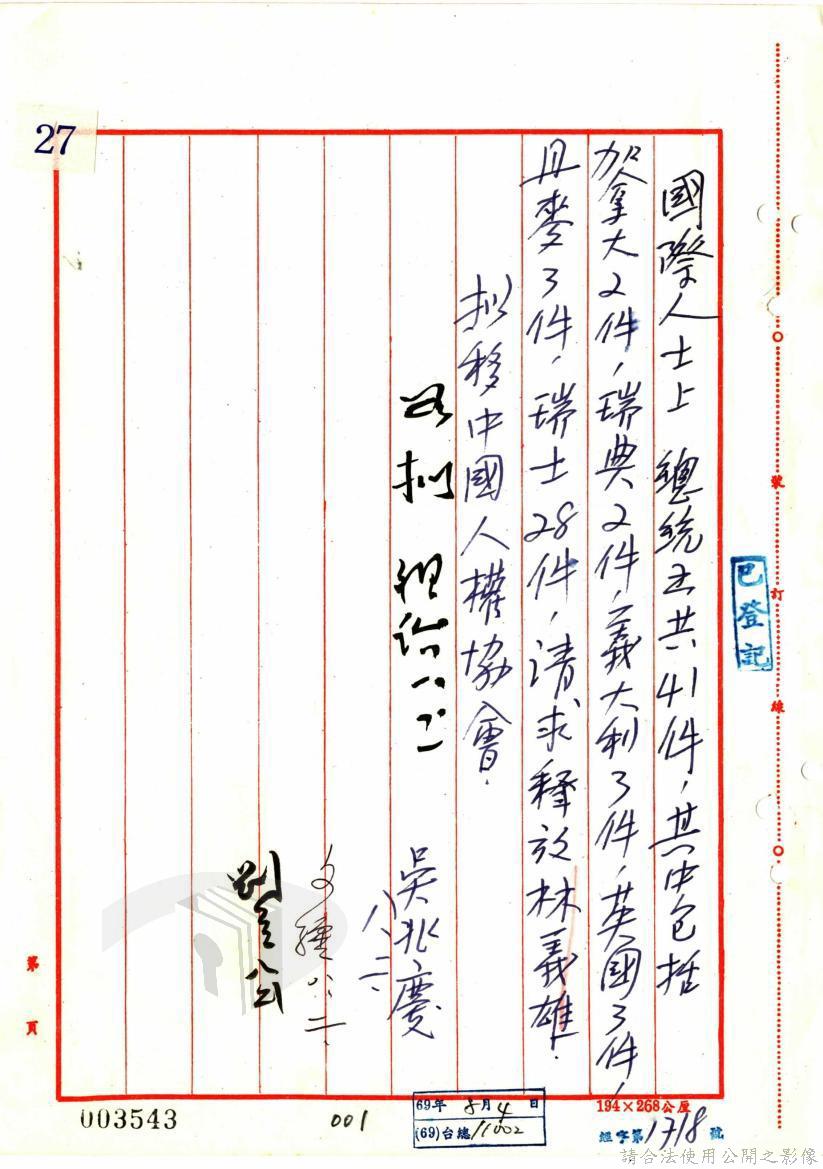 27
國際人士上　總統函共41件，其中包括
加拿大2件，瑞典2件，義大利3件，英國3件，
丹麥3件，瑞士28件，請求釋放林義雄．
擬移中國人權協會．
如擬
吳兆慶
八、二、
八、二、
已登記
號
訂
線
第
頁
003543
001
69年 8月4日
(69)台總11002
194×268公厘
經字第1718號
請合法使用公開之影像